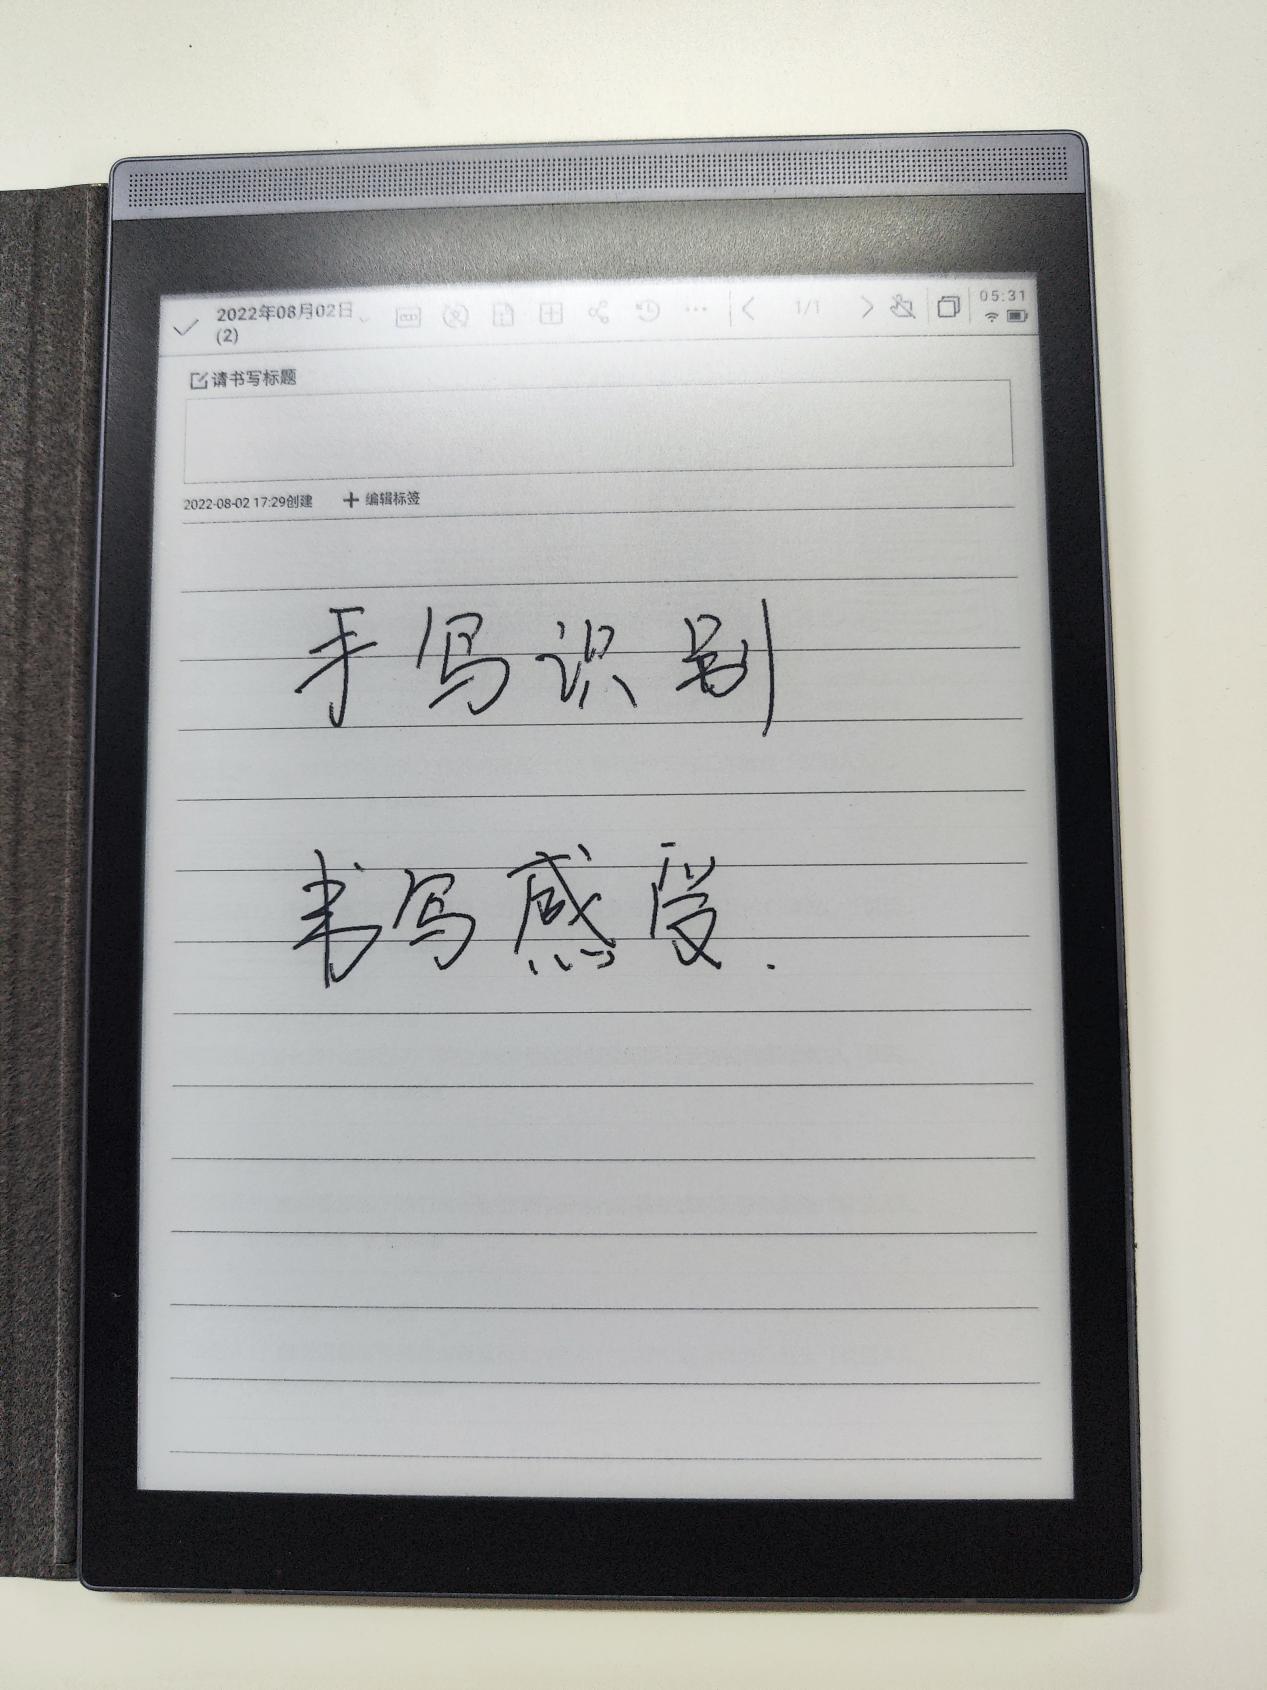 2022年08月02日 1/1 05:31
(2)
请书写标题
2022-08-02 17:29创建 编辑标签
手写识别
书写感受.